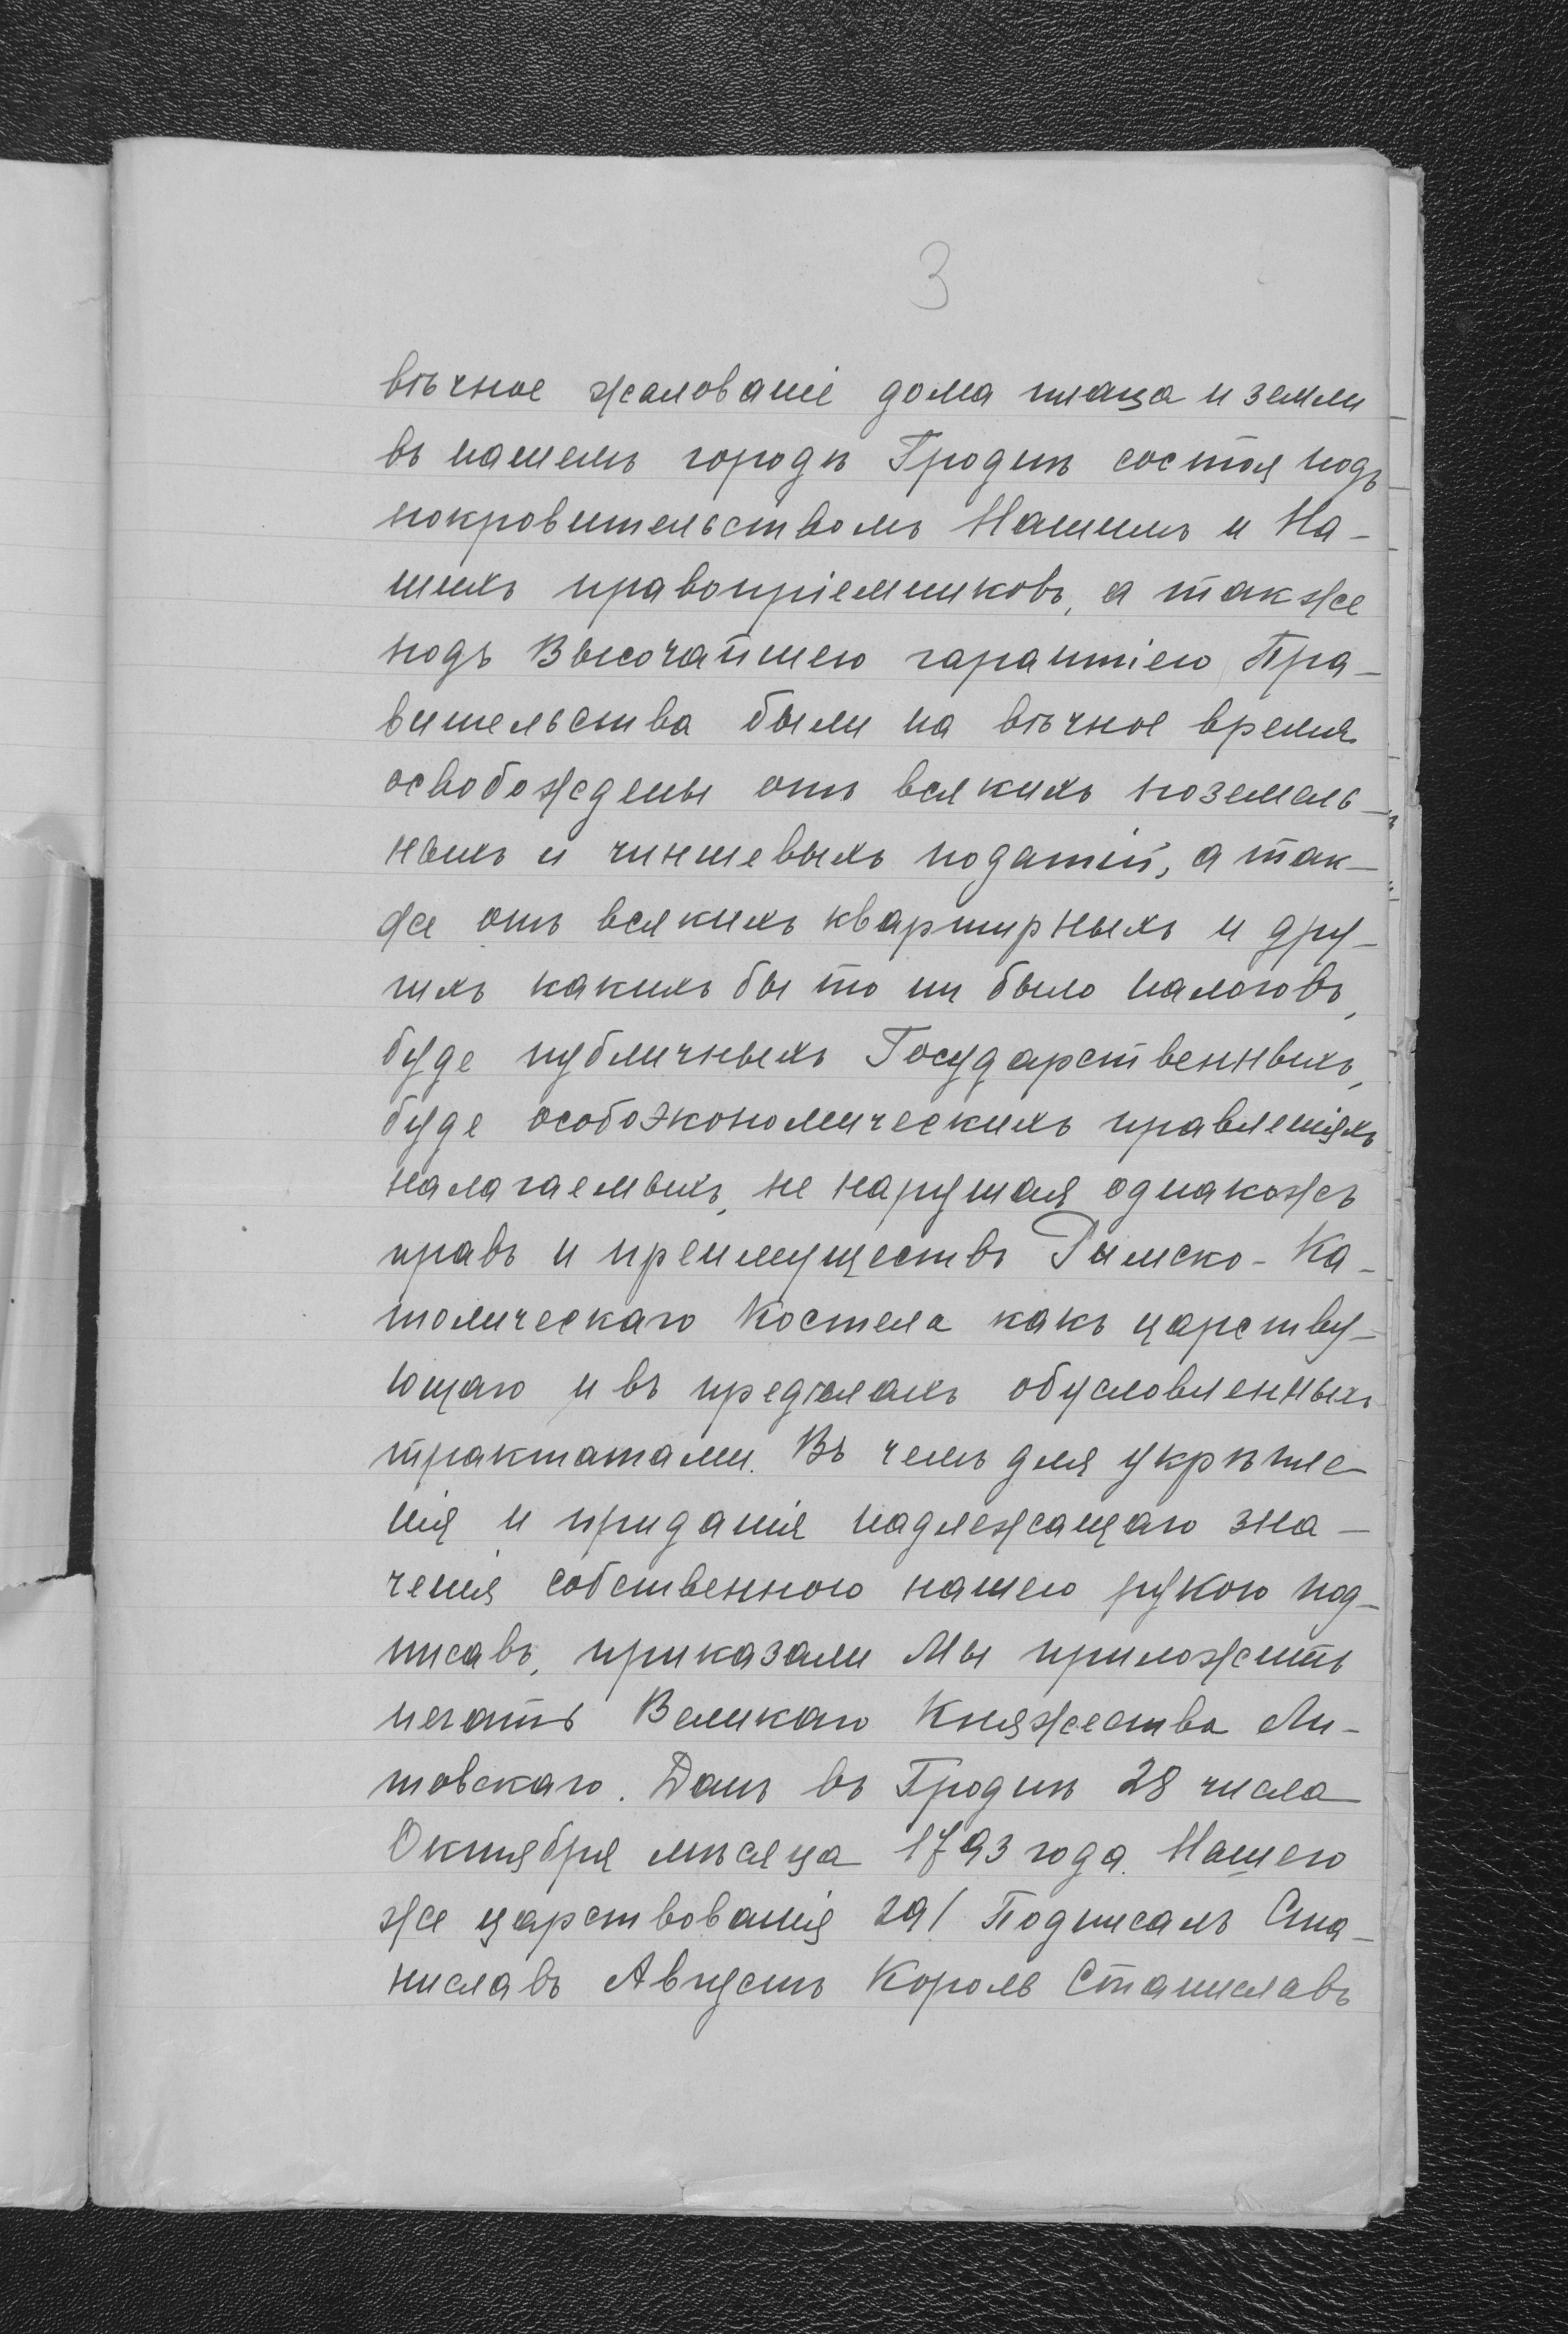 3
вѣчное жалованіе дома плаца и земли
въ нашемъ городѣ Гроднѣ состоя подъ
покровительствомъ Нашимъ и На-
шихъ правопріемниковъ, а также
подъ Высочайшею гарантіею Пра-
вительства были на вѣчное время
освобождены отъ всякихъ поземель-
ныхъ и чиншевыхъ податій, а так-
же отъ всякихъ квартирныхъ и дру-
гихъ какихъ бы то ни было налоговъ,
буде публичныхъ Государственныхъ,
буде особоэкономическихъ правленіяхъ
налагаемыхъ, не нарушая однакожъ
правъ и преимуществъ Римско-Ка-
толическаго Костела какъ царству-
ющаго и въ предѣлахъ обусловленныхъ
трактатами. Въ чемъ для укрѣпле-
нія и приданія надлежащаго зна-
ченія собственною нашею рукою под-
писавъ, приказали Мы приложить
печать Великаго Княжества Ли-
товскаго. Данъ въ Гроднѣ 28 числа
Октября мѣсяца 1793 года. Нашего
же царствованія 29/ Подписалъ Ста-
ниславъ Августъ Король Станиславъ